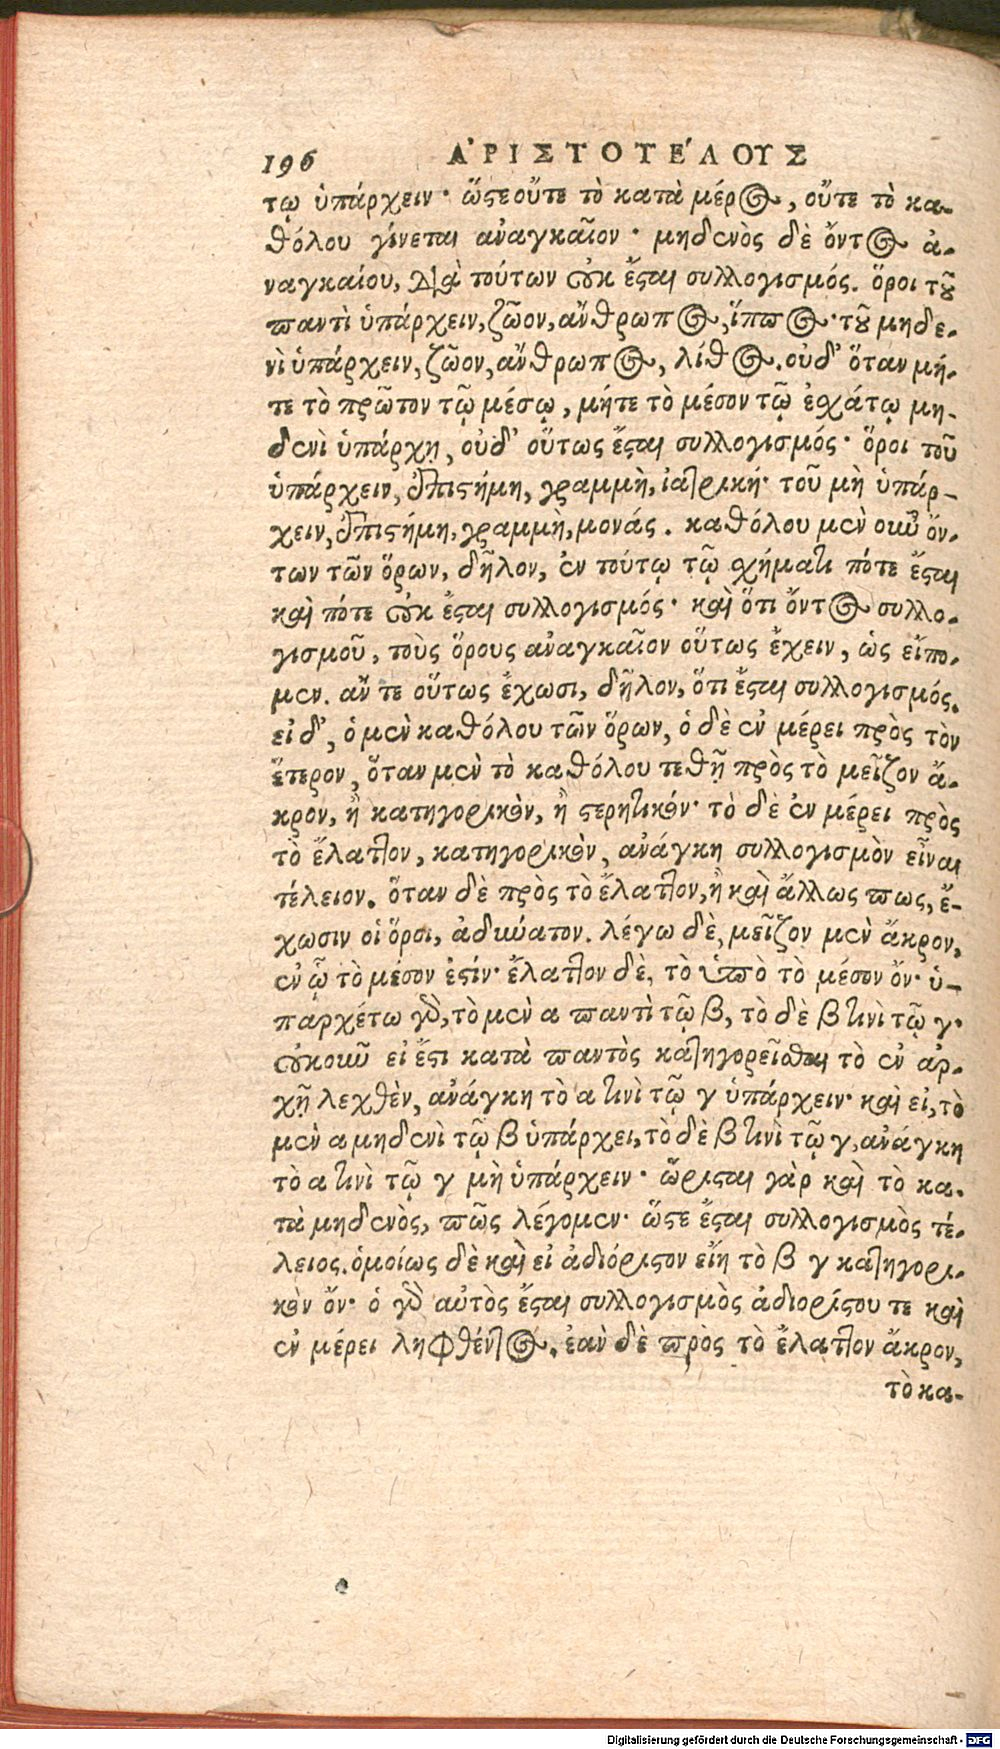 196 ΑʼΡΙΣΤΟΤΕʹΛΟΥΣ
τῳ ὑπάρχειν· ὥστε οὔτε τὸ κατὰ μέρος, οὔτε τὸ κα-
θόλου γίνεται ἀναγκαῖον· μηδενὸς δὲ ὄντος ἀ-
ναγκαίου, διὰ τούτων οὐκ ἔσται συλλογισμός. ὅροι τοῦ
παντὶ ὑπάρχειν, ζῶον, ἄνθρωπος, ἵππος· τοῦ μηδε-
νὶ ὑπάρχειν, ζῶον, ἄνθρωπος, λίθος. οὐδ' ὅταν μή-
τε τὸ πρῶτον τῷ μέσῳ, μήτε τὸ μέσον τῷ ἐσχάτῳ μη-
δενὶ ὑπάρχῃ, οὐδ' οὕτως ἔσται συλλογισμός· ὅροι τοῦ
ὑπάρχειν, ἐπιστήμη, γραμμὴ, ἰατρική· τοῦ μὴ ὑπάρ-
χειν, ἐπιστήμη, γραμμὴ, μονάς. καθόλου μὲν οὖν ὄν-
των τῶν ὅρων, δῆλον, ἐν τούτῳ τῷ σχήματι πότε ἔσται
καὶ πότε οὐκ ἔσται συλλογισμός· καὶ ὅτι ὄντος συλλο-
γισμοῦ, τοὺς ὅρους ἀναγκαῖον οὕτως ἔχειν, ὡς εἴπο-
μεν. ἄν τε οὕτως ἔχωσι, δῆλον, ὅτι ἔσται συλλογισμός.
εἰ δ', ὁ μὲν καθόλου τῶν ὅρων, ὁ δὲ ἐν μέρει πρὸς τὸν
ἕτερον, ὅταν μὲν τὸ καθόλου τεθῇ πρὸς τὸ μεῖζον ἄ-
κρον, ἢ κατηγορικὸν, ἢ στερητικόν· τὸ δὲ ἐν μέρει πρὸς
τὸ ἔλαττον, κατηγορικὸν, ἀνάγκη συλλογισμὸν εἶναι
τέλειον. ὅταν δὲ πρὸς τὸ ἔλαττον, ἢ καὶ ἄλλως πως, ἔ-
χωσιν οἱ ὅροι, ἀδύνατον. λέγω δὲ, μεῖζον μὲν ἄκρον,
ἐν ᾧ τὸ μέσον ἐστίν· ἔλαττον δὲ, τὸ ὑπὸ τὸ μέσον ὄν· ὑ-
παρχέτω γὰρ, τὸ μὲν α παντὶ τῷ β, τὸ δὲ β τινὶ τῷ γ·
οὐκοῦν εἰ ἔστι κατὰ παντὸς κατηγορεῖσθαι τὸ ἐν ἀρ-
χῇ λεχθὲν, ἀνάγκη τὸ α τινὶ τῷ γ ὑπάρχειν· καὶ εἰ, τὸ
μὲν α μηδενὶ τῷ β ὑπάρχει, τὸ δὲ β τινὶ τῷ γ, ἀνάγκη
τὸ α τινὶ τῷ γ μὴ ὑπάρχειν· ὥρισται γὰρ καὶ τὸ κα-
τὰ μηδενὸς, πῶς λέγομεν· ὥστε ἔσται συλλογισμὸς τέ-
λειος. ὁμοίως δὲ καὶ εἰ ἀδιόριστον εἴη τὸ β γ κατηγορι-
κὸν ὄν· ὁ γὰρ αὐτὸς ἔσται συλλογισμὸς ἀδιορίστου τε καὶ
ἐν μέρει ληφθέντος. ἐὰν δὲ πρὸς τὸ ἔλαττον ἄκρον,
τὸ κα-
Digitalisierung gefördert durch die Deutsche Forschungsgemeinschaft - DFG